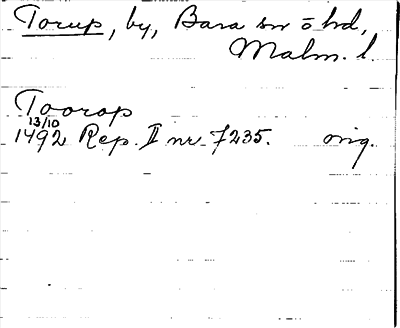 Torup, by, Bara sn o hd,
Malm. l.
Toorop
13/10
1492 Rep. II nr 7235. orig.